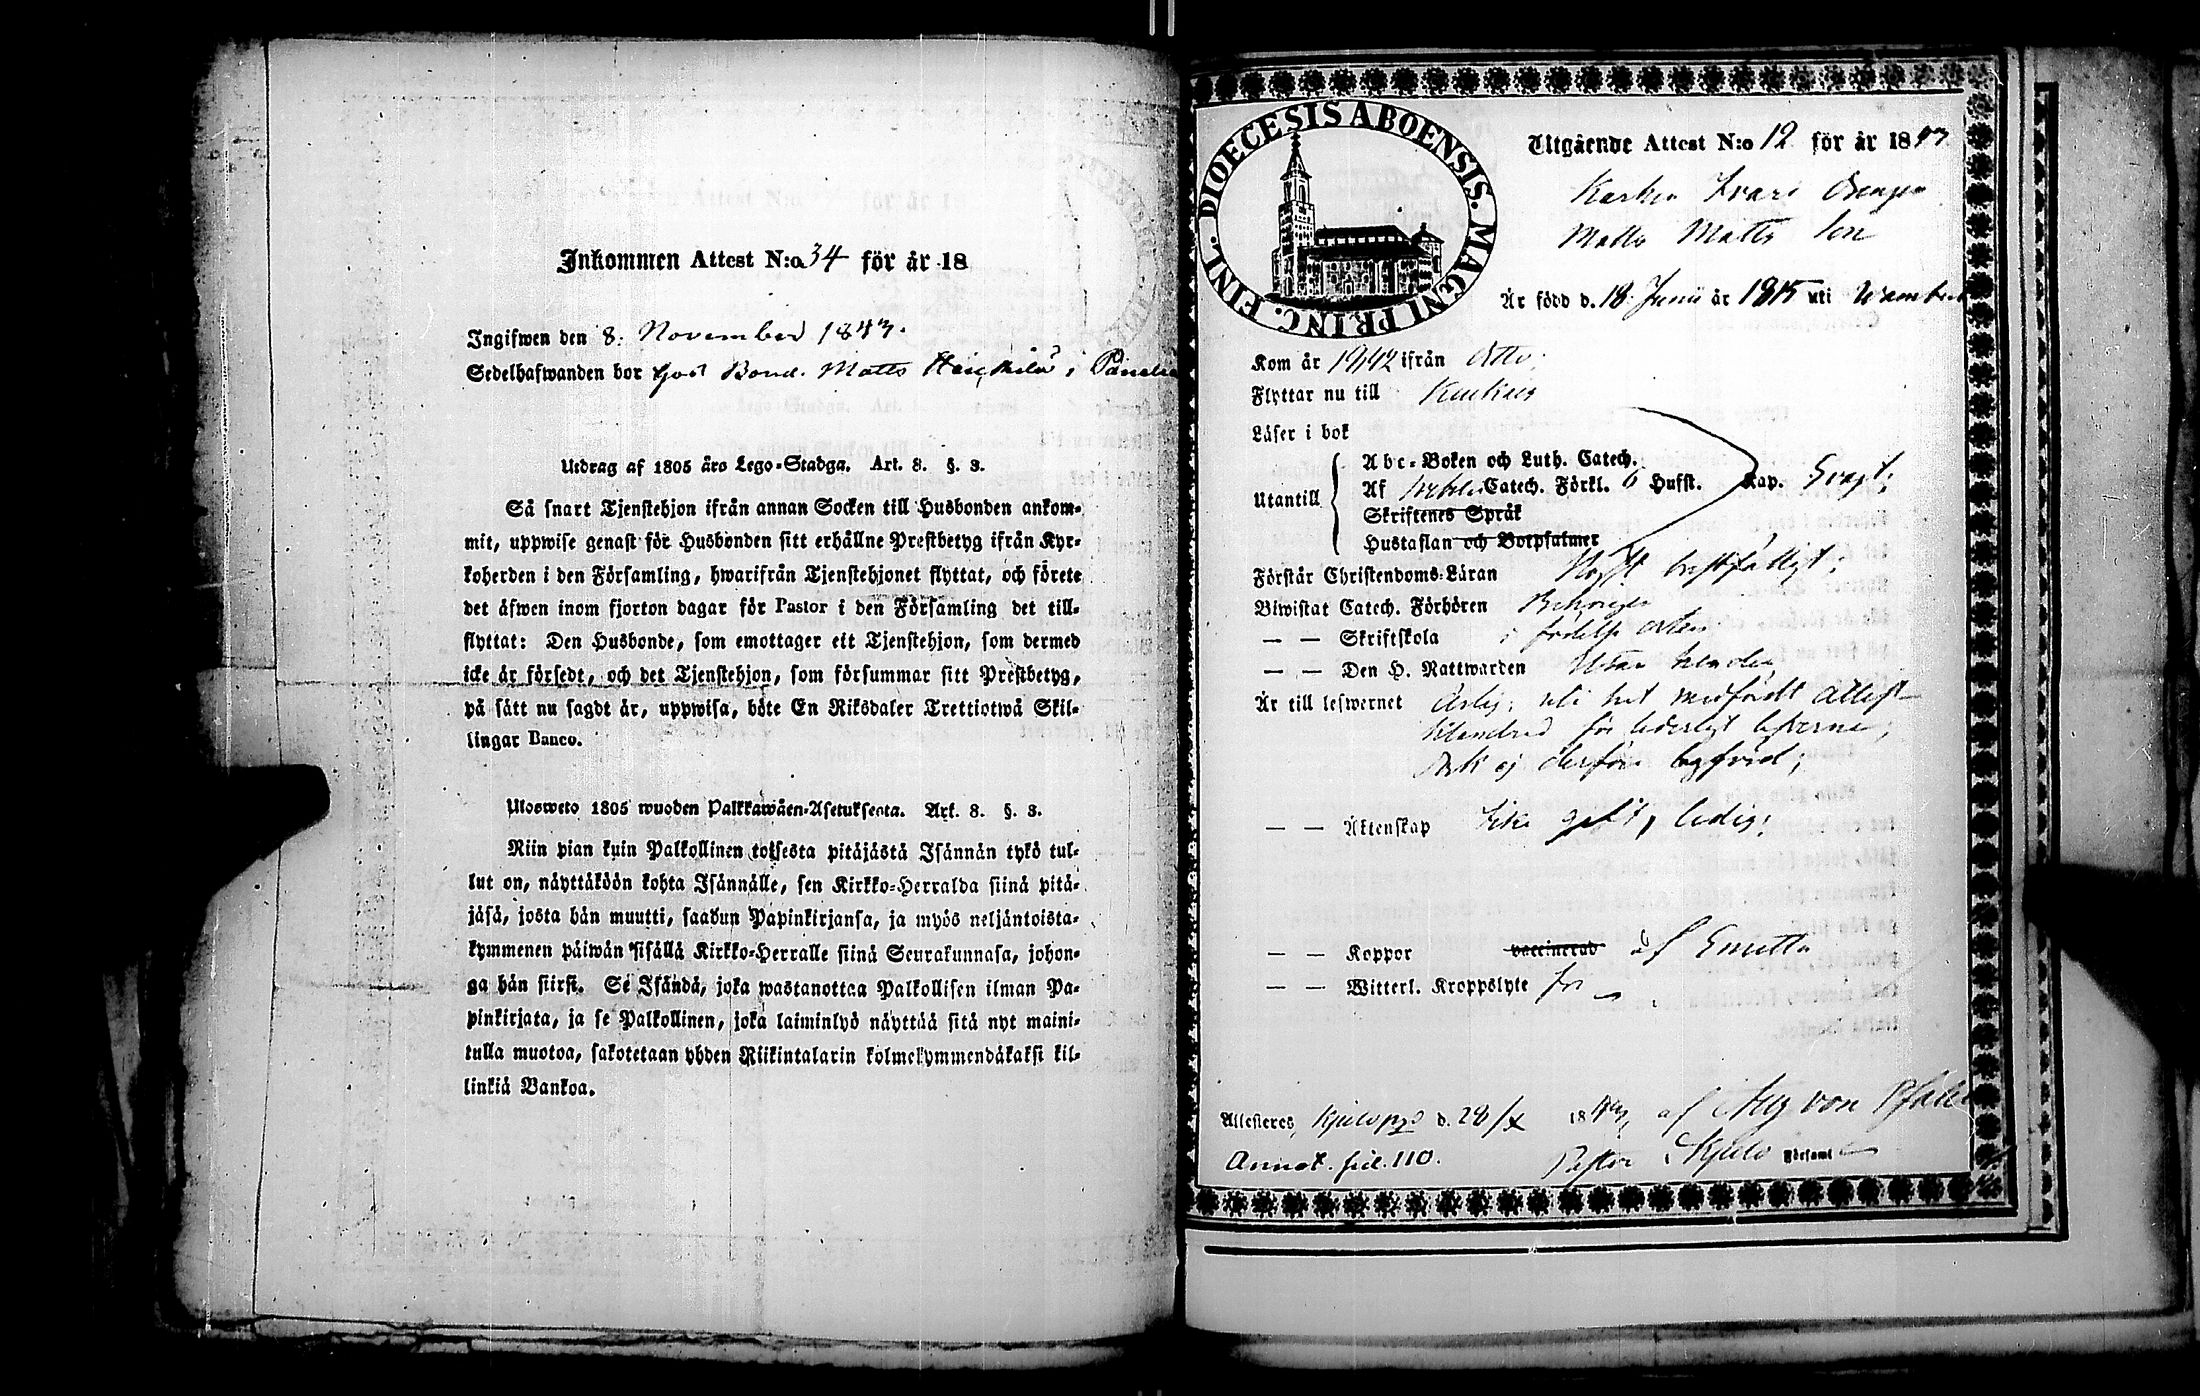 Inkommen Attest N:o 34 för år 18
Ingifwen den 8. November 1843.
Sedelhafwanden bor hos Bond. Matts i
Utdrag af 1805 års Lego-Stadga. Art. 8. §. 3.
Så snart Tjenstehjon ifrån annan Socken till Husbonden ankom-
mit, uppwise genast för Husbonden sitt erhållne Prestbetyg ifrån Kyr-
koherden i den Församling, hwarifrån Tjenstehjonet flyttat, och förete
det äfwen inom fjorton dagar för Pastor i den Församling det till-
flyttat: Den Husbonde, som emottager ett Tjenstehjon, som dermed
icke är försedt, och det Tjenstehjon, som försummar sitt Prestbetyg,
på sätt nu sagdt är, uppwisa, böte En Riksdaler Trettiotwå Skil-
lingar Banco.
Ulosweto 1805 wuoden Palkkawäen-Asetuksesta. Art. 8. §. 3.
Niin pian kuin Palkollinen toisesta pitäjästä Isännän tykö tul-
lut on, näyttäköön kohta Isännälle, sen Kirkko-Herralda siinä pitä-
jäsä, josta hän muutti, saadun Papinkirjansa, ja myös neljäntoista-
kymmenen päiwän sisällä Kirkko-Herralle siinä Seurakunnasa, johon-
ga hän siirsi. Se Isändä, joka wastanottaa Palkollisen ilman Pa-
pinkirjata, ja se Palkollinen, joka laiminlyö näyttää sitä nyt maini-
tulla muotoa, sakotetaan yhden Riikintalarin kolmekymmendäkaksi kil-
linkiä Bankoa.
DIOECESIS ABOENSIS. MAGNI PRINC. FINL.
Utgående Attest N:o 12 för år 1843
Karken Ivari Drengen
Matts Matts Son
Är född d. 18 Junii år 1815 uti
Kom år 1842 ifrån
Flyttar nu till
Läser i bok
Utantill
Abc-Boken och Luth. Catech.
Af Catech. Förkl. 6 Hufst. Kap. Svagt;
Skriftenes Språk
Hustaflan och Botpsalmer
Förstår Christendoms-Läran
Biwistat Catech. Förhören
— — Skriftskola i födelse orten
— — Den H. Nattwarden
Är till lefwernet
för liderligt lefverne,
ej derföre lagförd;
— — Äktenskap Icke gift, ledig;
— — Koppor vaccinerad af Smitta
— — Witterl. Kroppslyte fri
Attesteras, Kjulo d. 28/X 1843, af Aug von
Annot. fol. 110. Pastor i Kjulo Församl